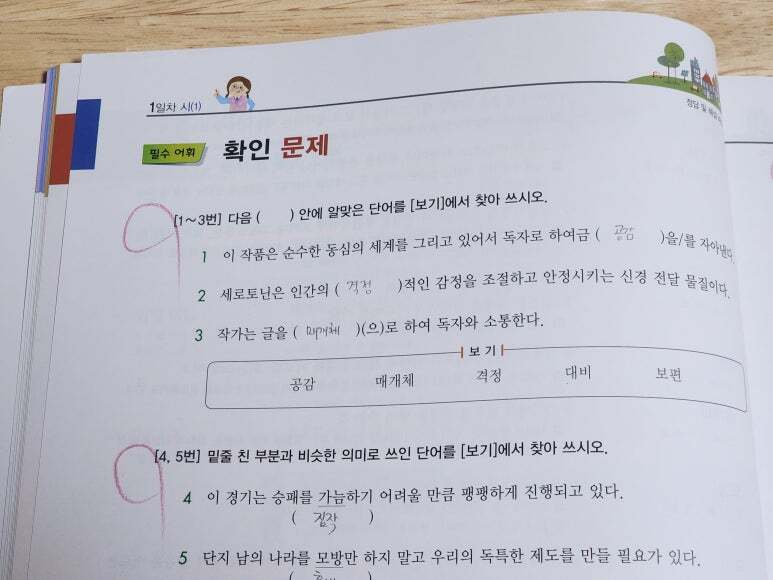 1일차 시(1)
정답 및 해설
필수 어휘 확인 문제
[1～3번] 다음 (    ) 안에 알맞은 단어를 [보기]에서 찾아 쓰시오.
1 이 작품은 순수한 동심의 세계를 그리고 있어서 독자로 하여금 ( 공감 )을/를 자아낸다.
2 세로토닌은 인간의 ( 격정 )적인 감정을 조절하고 안정시키는 신경 전달 물질이다.
3 작가는 글을 ( 매개체 )(으)로 하여 독자와 소통한다.
보기
공감 매개체 격정 대비 보편
[4, 5번] 밑줄 친 부분과 비슷한 의미로 쓰인 단어를 [보기]에서 찾아 쓰시오.
4 이 경기는 승패를 가늠하기 어려울 만큼 팽팽하게 진행되고 있다.
( 짐작 )
5 단지 남의 나라를 모방만 하지 말고 우리의 독특한 제도를 만들 필요가 있다.